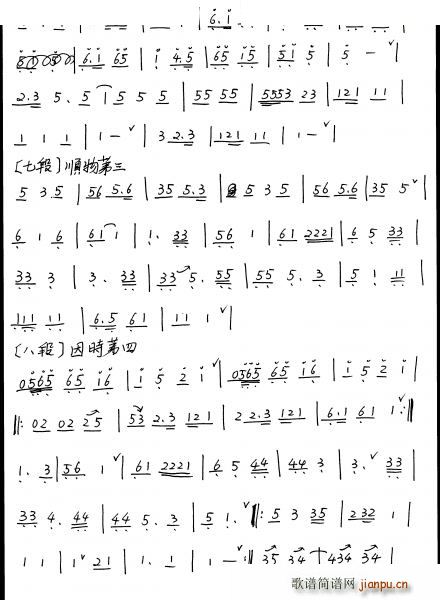 6.i
6.i 65 | i 4.5 | 65 i5 | 5i 5 | 5 — ˅ |
2.3 5、5 i | 5 5 5 | 55 55 | 5553 23 | 121 11 |
1 1 1 | 1 — ˅ | 3 2.3 | 121 11 | 1 — ˅ |
〔七段〕順物第三
5 3.5 | 56 5.6 | 35 5.3 | 5 3 5 | 56 5.6 | 35 5 ˅ |
6 1 6 | 61 1 | 1. 33 | 56 1 | 61 2221 | 6 5 33 |
33 3 | 3. 33 | 33 5. 55 | 55 5. 3 | 5 1 11 |
111 11 | 6.5 61 | 11 1 ˅ |
〔八段〕因時第四
0565 65 i6 | i 5 2 i ˅ | 0565 65 i6 | i 5 2 i |
‖: 02 02 25 | 53 2.3 121 | 2 2.3 121 | 6.1 61 1 ˅ :‖
1. 3 | 56 1 ˅ | 61 2221 | 6 5 44 | 44 3 | 3. ˅ 33 |
33 4. 44 | 44 5. 3 | 5 1. ˅ ‖: 5 3 35 | 232 1 |
1 1 | 1 ˅ 21 | 1. 1 | 1 — ˅ :‖ 35 34 + 434 34 |
歌谱简谱网
jianpu.cn